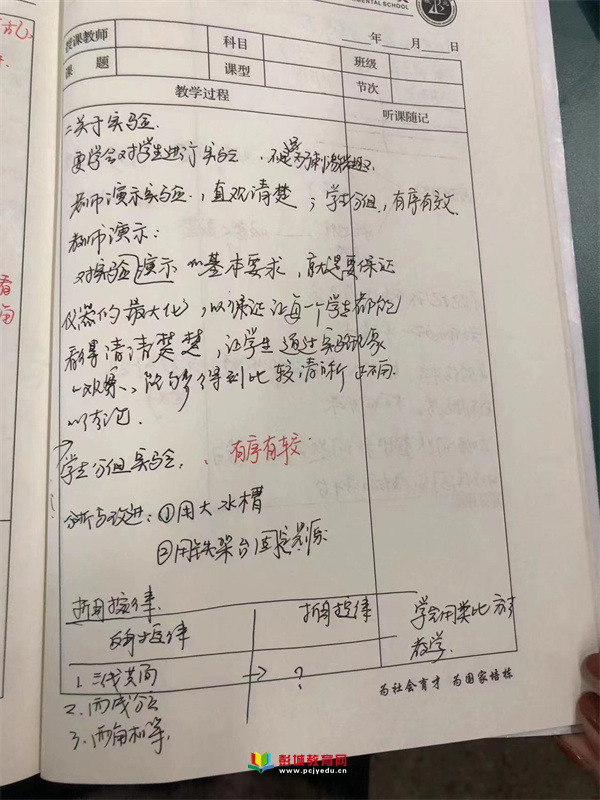 MENTAL SCHOOL
授课教师 科目 年 月 日
课题 课型 班级
节次
教学过程 听课随记
二关于实验.
要学会对学生进行实验,不是为刺激
老师演示实验,直观清楚;学生分组,有序有效.
教师演示:
对实验演示的基本要求,就是要保证
仪器的最大化,以保证让每一个学生都能
看得清清楚楚,让学生通过实验现象
观察、能够得到比较清晰正确
的方法.
学生分组实验.、有序有较
分析与改进:①用大水槽
②用铁架台固定
折射定律.
反射定律 折射定律 学会用类比方式
教学.
1.三线共面 → ?
2.两线分居
3.两角相等.
为社会育才 为国家培栋
彭城教育网
www.pcjyedu.cn